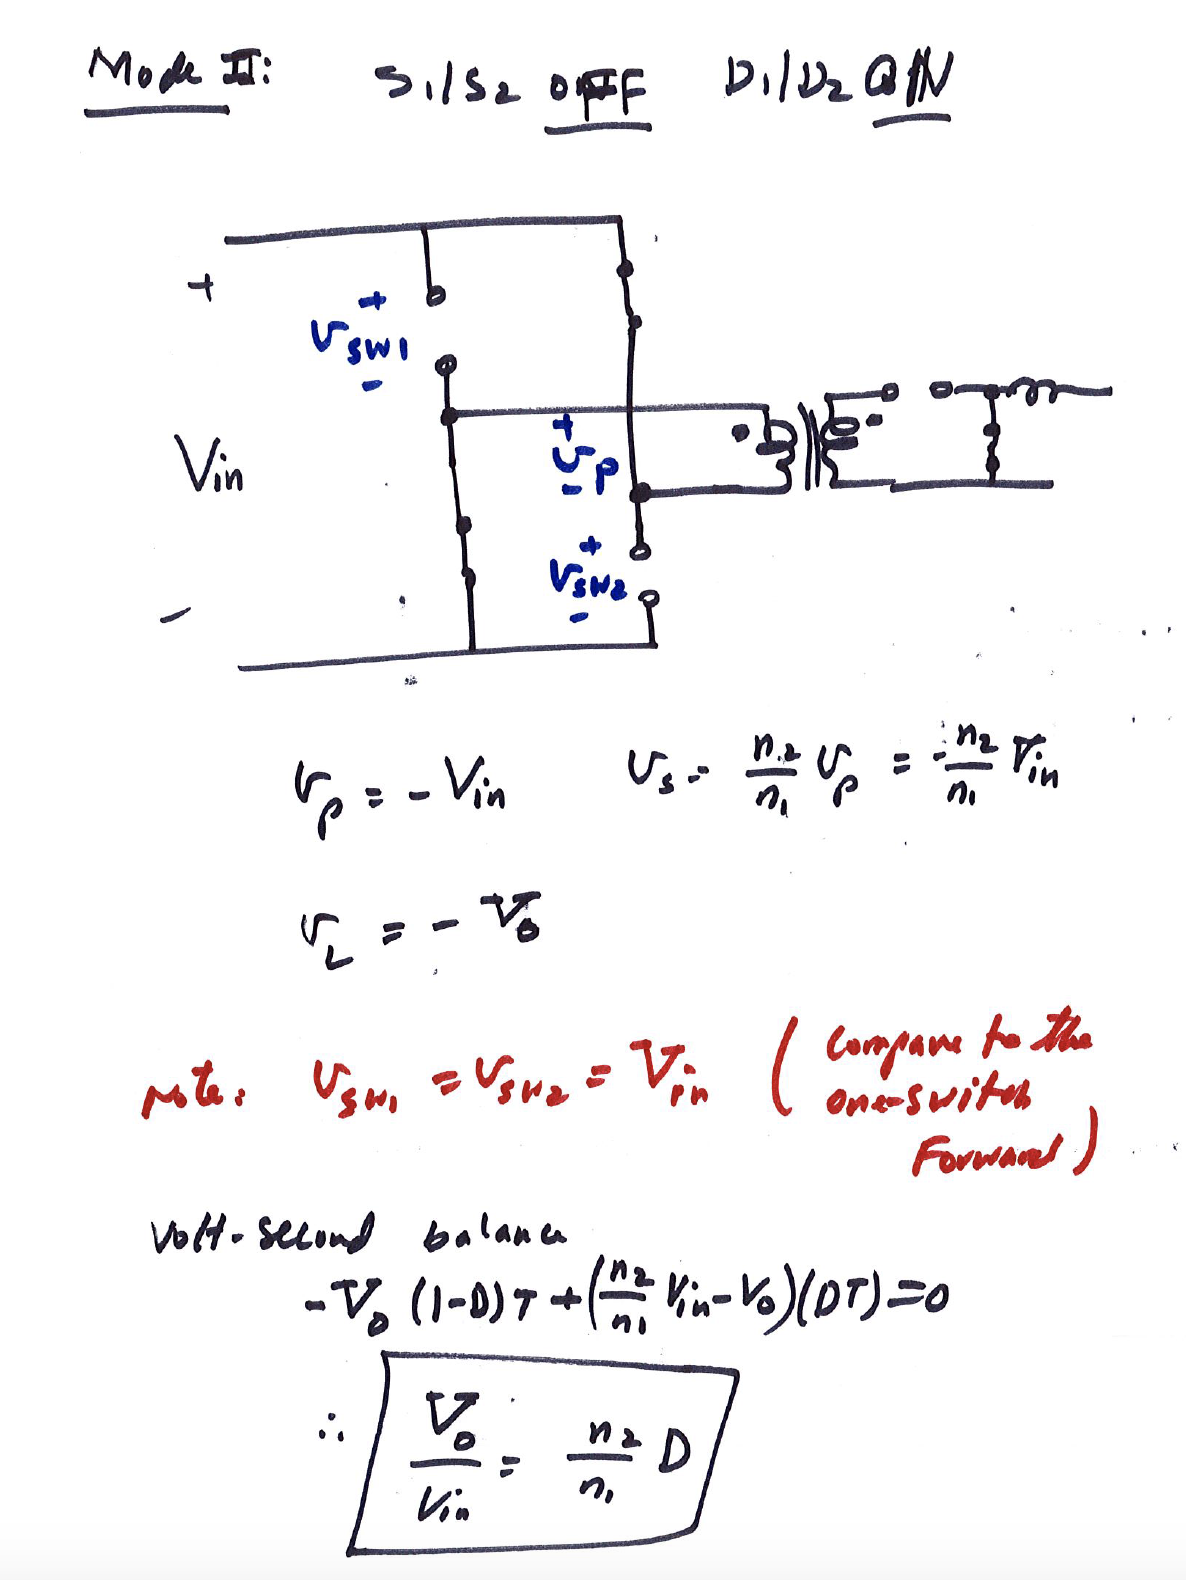 Mode II: S₁/S₂ OFF D₁/D₂ ON
+
+
V_SW1
-
+
Vin
V_P
-
+
V_SW2
-
-
V_P = - Vin V_S = n₂/n₁ V_P = - n₂/n₁ Vin
V_L = - V₀
Note: V_SW1 = V_SW2 = Vin ( Compare to the
one-switch
Forward )
Volt-second balance
-V₀ (1-D)T + (n₂/n₁ Vin - V₀)(DT) = 0
∴ V₀/Vin = n₂/n₁ D